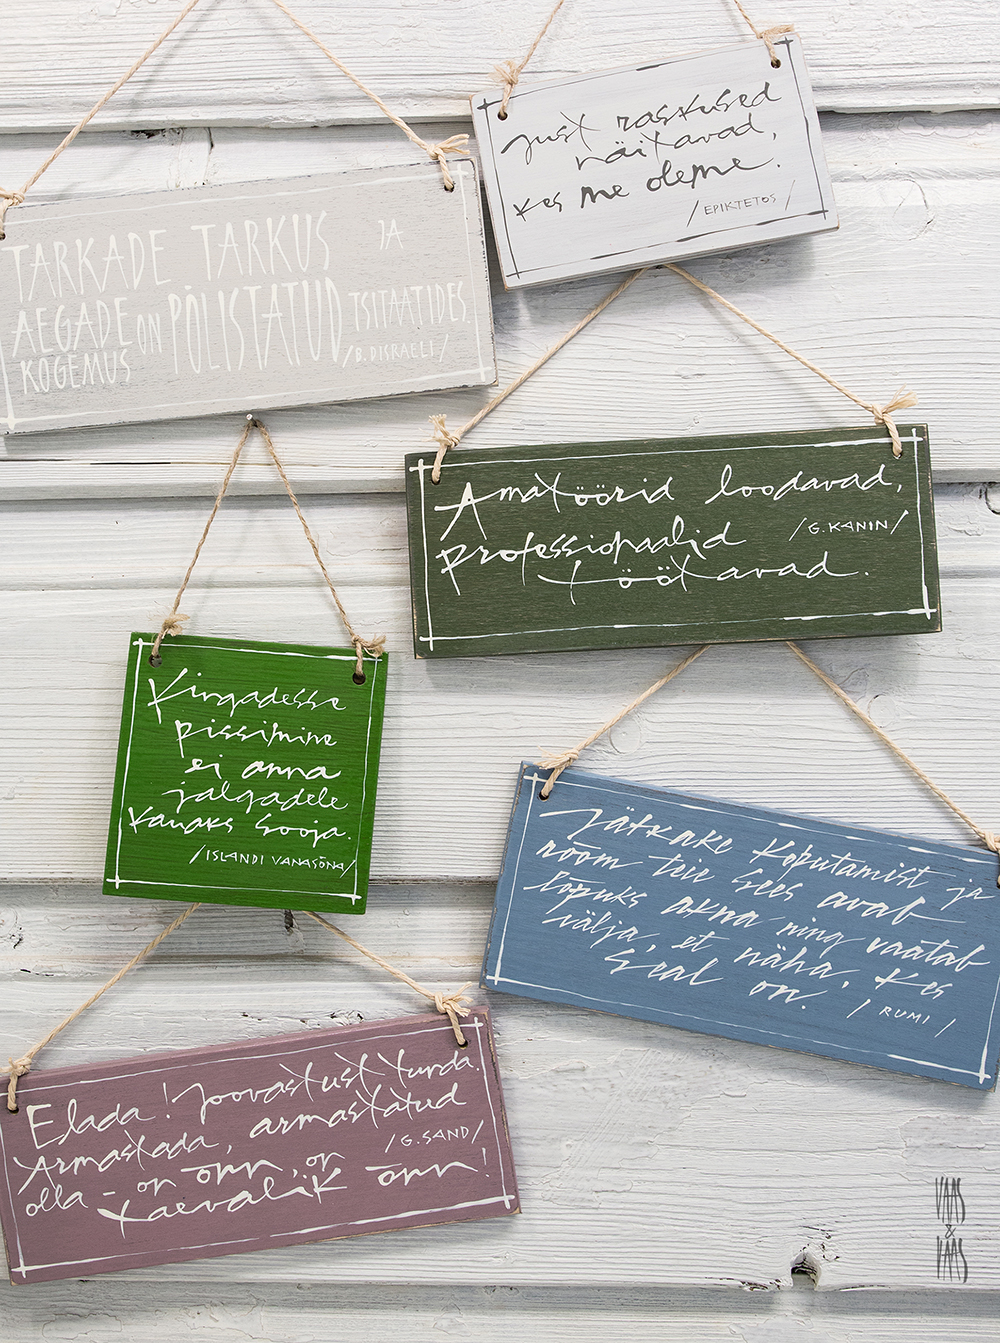 Just raskused
näitavad,
kes me oleme.
/EPIKTETOS/
TARKADE TARKUS JA
AEGADE KOGEMUS ON PÕLISTATUD TSITAATIDES.
/B. DISRAELI/
Amatöörid loodavad,
professionaalid
/G. KANIN/
töötavad.
Kingadesse
pissimine
ei anna
jalgadele
kauaks sooja.
/ISLANDI VANASÕNA/
Jätkake koputamist ja
rõõm teie sees avab
lõpuks akna ning vaatab
välja, et näha, kes
seal on.
/RUMI/
Elada! Joovastust tunda.
Armastada, armastatud
/G. SAND/
olla - on õnn, on
taevalik õnn!
VAAS
&
VAAS